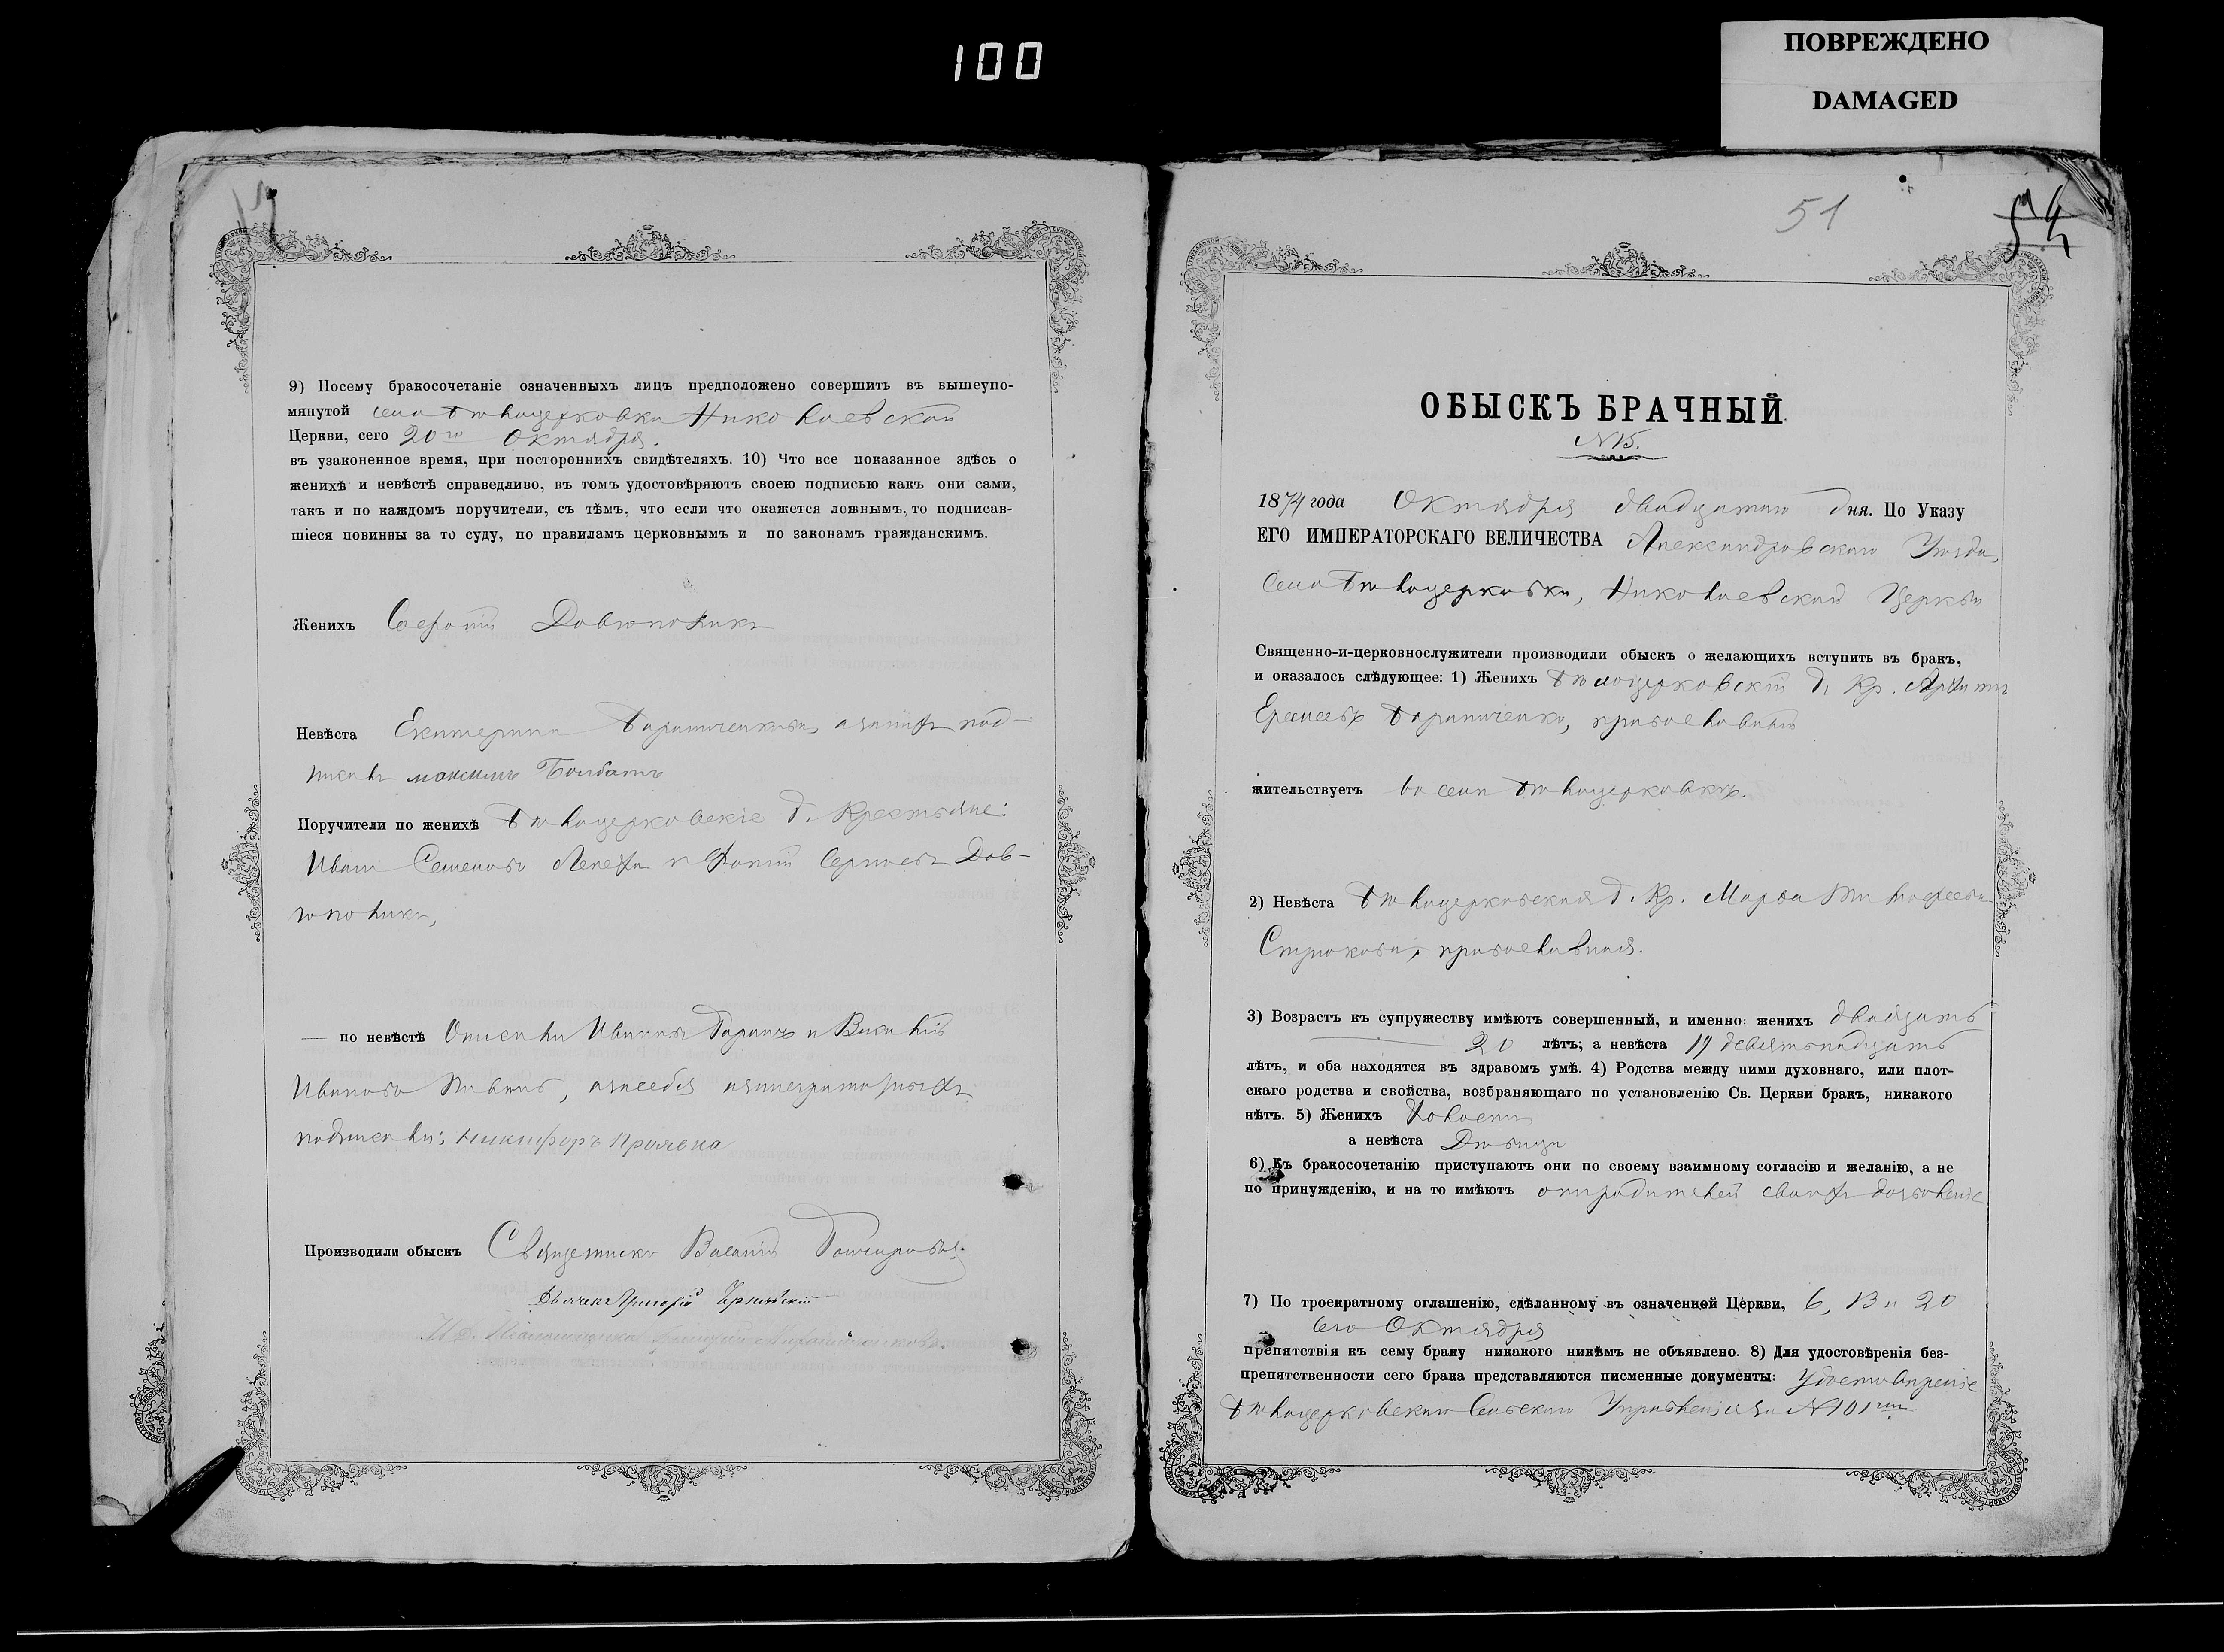 100
ПОВРЕЖДЕНО
DAMAGED
9) Посему бракосочетаніе означенныхъ лицъ предположено совершить въ вышеупо-
мянутой села Бѣлоцерковки Николаевской
Церкви, сего 20го Октября.
въ узаконенное время, при постороннихъ свидѣтеляхъ. 10) Что все показанное здѣсь о
женихѣ и невѣстѣ справедливо, въ томъ удостовѣряютъ своею подписью какъ они сами,
такъ и по каждомъ поручители, съ тѣмъ, что если что окажется ложнымъ, то подписав-
шіеся повинны за то суду, по правиламъ церковнымъ и по законамъ гражданскимъ.
Женихъ
Невѣста Екатерина
максимъ
Поручители по женихѣ Бѣлоцерковскіе г. Крестьяне:
Иванъ Семеновъ Лепеха и Фотій Сергіевъ Дов-
— по невѣстѣ Иванъ
Ивановъ
подписалъ: Никифоръ
Производили обыскъ Священникъ Василій
Дьячекъ Григорій
51
54
ОБЫСКЪ БРАЧНЫЙ.
N 15.
1874 года Октября двадцатаго дня. По Указу
ЕГО ИМПЕРАТОРСКАГО ВЕЛИЧЕСТВА Александровскаго Уѣзда,
Села Бѣлоцерковки, Николаевской Церкви
Священно-и-церковнослужители производили обыскъ о желающихъ вступить въ бракъ,
и оказалось слѣдующее: 1) Женихъ Бѣлоцерковскій г. Кр.
православный
жительствуетъ въ селѣ Бѣлоцерковкѣ.
2) Невѣста Бѣлоцерковская г. Кр. Марѳа Тимофеева
Строкова, православная.
3) Возрастъ къ супружеству имѣютъ совершенный, и именно: женихъ двадцать
20 лѣтъ; а невѣста 19 девятнадцать
лѣтъ, и оба находятся въ здравомъ умѣ. 4) Родства между ними духовнаго, или плот-
скаго родства и свойства, возбраняющаго по установленію Св. Церкви бракъ, никакого
нѣтъ. 5) Женихъ Холостъ
а невѣста Дѣвица
6) Къ бракосочетанію приступаютъ они по своему взаимному согласію и желанію, а не
по принужденію, и на то имѣютъ отъ родителей своихъ дозволеніе
7) По троекратному оглашенію, сдѣланному въ означенной Церкви, 6, 13 и 20
сего Октября
препятствія къ сему браку никакого никѣмъ не объявлено. 8) Для удостовѣренія без-
препятственности сего брака представляются писменные документы: Удостовѣреніе
Бѣлоцерковскаго Сельскаго Управленія за N 101